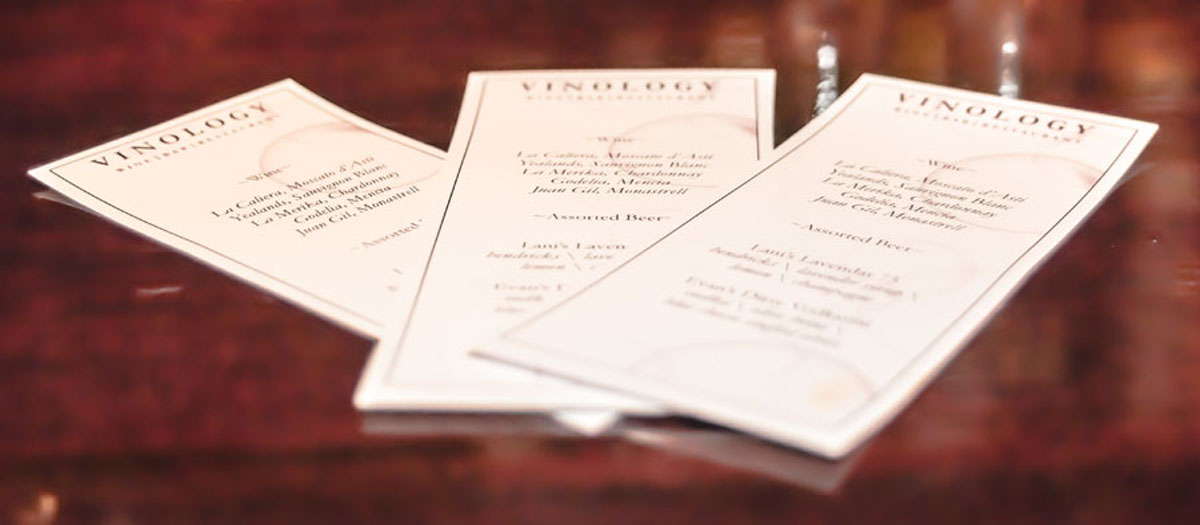 VINOLOGY
WINE|BAR|RESTAURANT
~Wine~
La Caliera, Moscato d'Asti
Yealands, Sauvignon Blanc
La Merika, Chardonnay
Godelia, Mencia
Juan Gil, Monastrell
~Assorted
VINOLOGY
WINE|BAR|RESTAURANT
~Wine~
La Caliera, Moscato d'Asti
Yealands, Sauvignon Blanc
La Merika, Chardonnay
Godelia, Mencia
Juan Gil, Monastrell
~Assorted Beer~
Lani's Laven
hendricks \ lave
lemon \ c
Evan's D
vodk
blue
VINOLOGY
WINE|BAR|RESTAURANT
~Wine~
La Caliera, Moscato d'Asti
Yealands, Sauvignon Blanc
La Merika, Chardonnay
Godelia, Mencia
Juan Gil, Monastrell
~Assorted Beer~
Lani's Lavendar 75
hendricks \ lavendar syrup \
lemon \ champagne
Evan's Dirty Vodkatini
vodka \ olive brine \
blue cheese stuffed olives